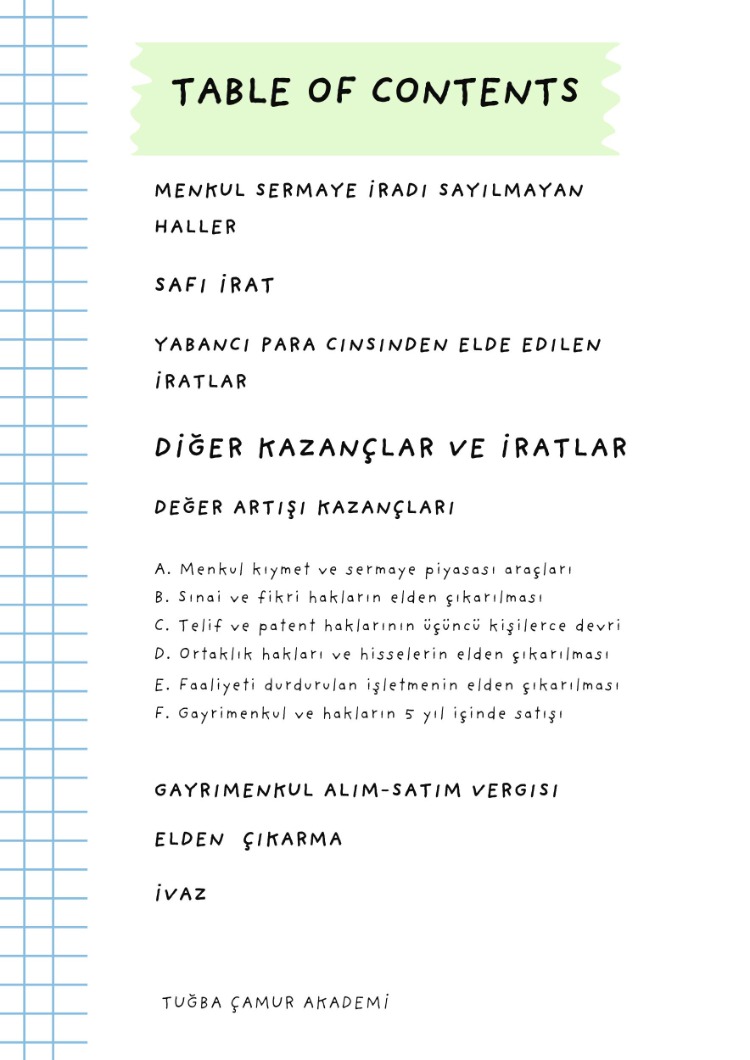 TABLE OF CONTENTS
MENKUL SERMAYE İRADI SAYILMAYAN
HALLER
SAFI İRAT
YABANCI PARA CINSINDEN ELDE EDILEN
İRATLAR
DİĞER KAZANÇLAR VE İRATLAR
DEĞER ARTIŞI KAZANÇLARI
A. Menkul kıymet ve sermaye piyasası araçları
B. Sınai ve fikri hakların elden çıkarılması
C. Telif ve patent haklarının üçüncü kişilerce devri
D. Ortaklık hakları ve hisselerin elden çıkarılması
E. Faaliyeti durdurulan işletmenin elden çıkarılması
F. Gayrimenkul ve hakların 5 yıl içinde satışı
GAYRIMENKUL ALIM-SATIM VERGISI
ELDEN ÇIKARMA
İVAZ
TUĞBA ÇAMUR AKADEMİ